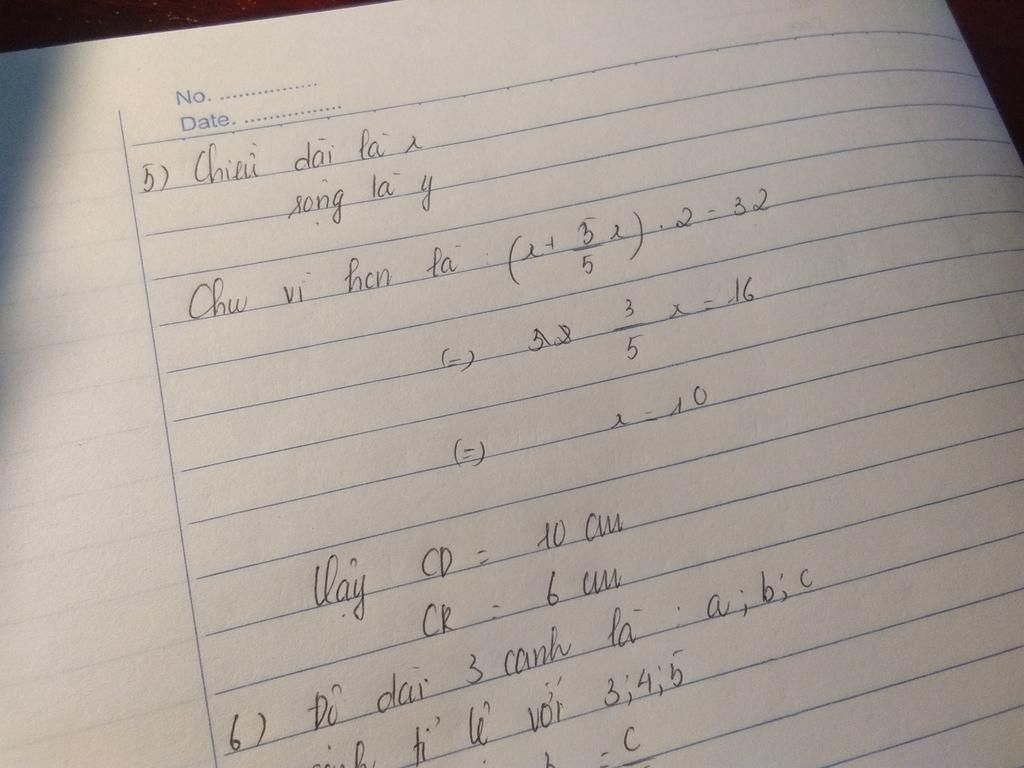 No. ................
Date. ................
5) Chiều dài là x
rộng là y
Chu vi hcn là : (x + 3/5 x) . 2 = 32
(=) 3/5 x = 16
(=) x = 10
Vậy CD = 10 cm
CR = 6 cm
6) Độ dài 3 cạnh là : a; b; c
tỉ lệ với 3; 4; 5
b = c